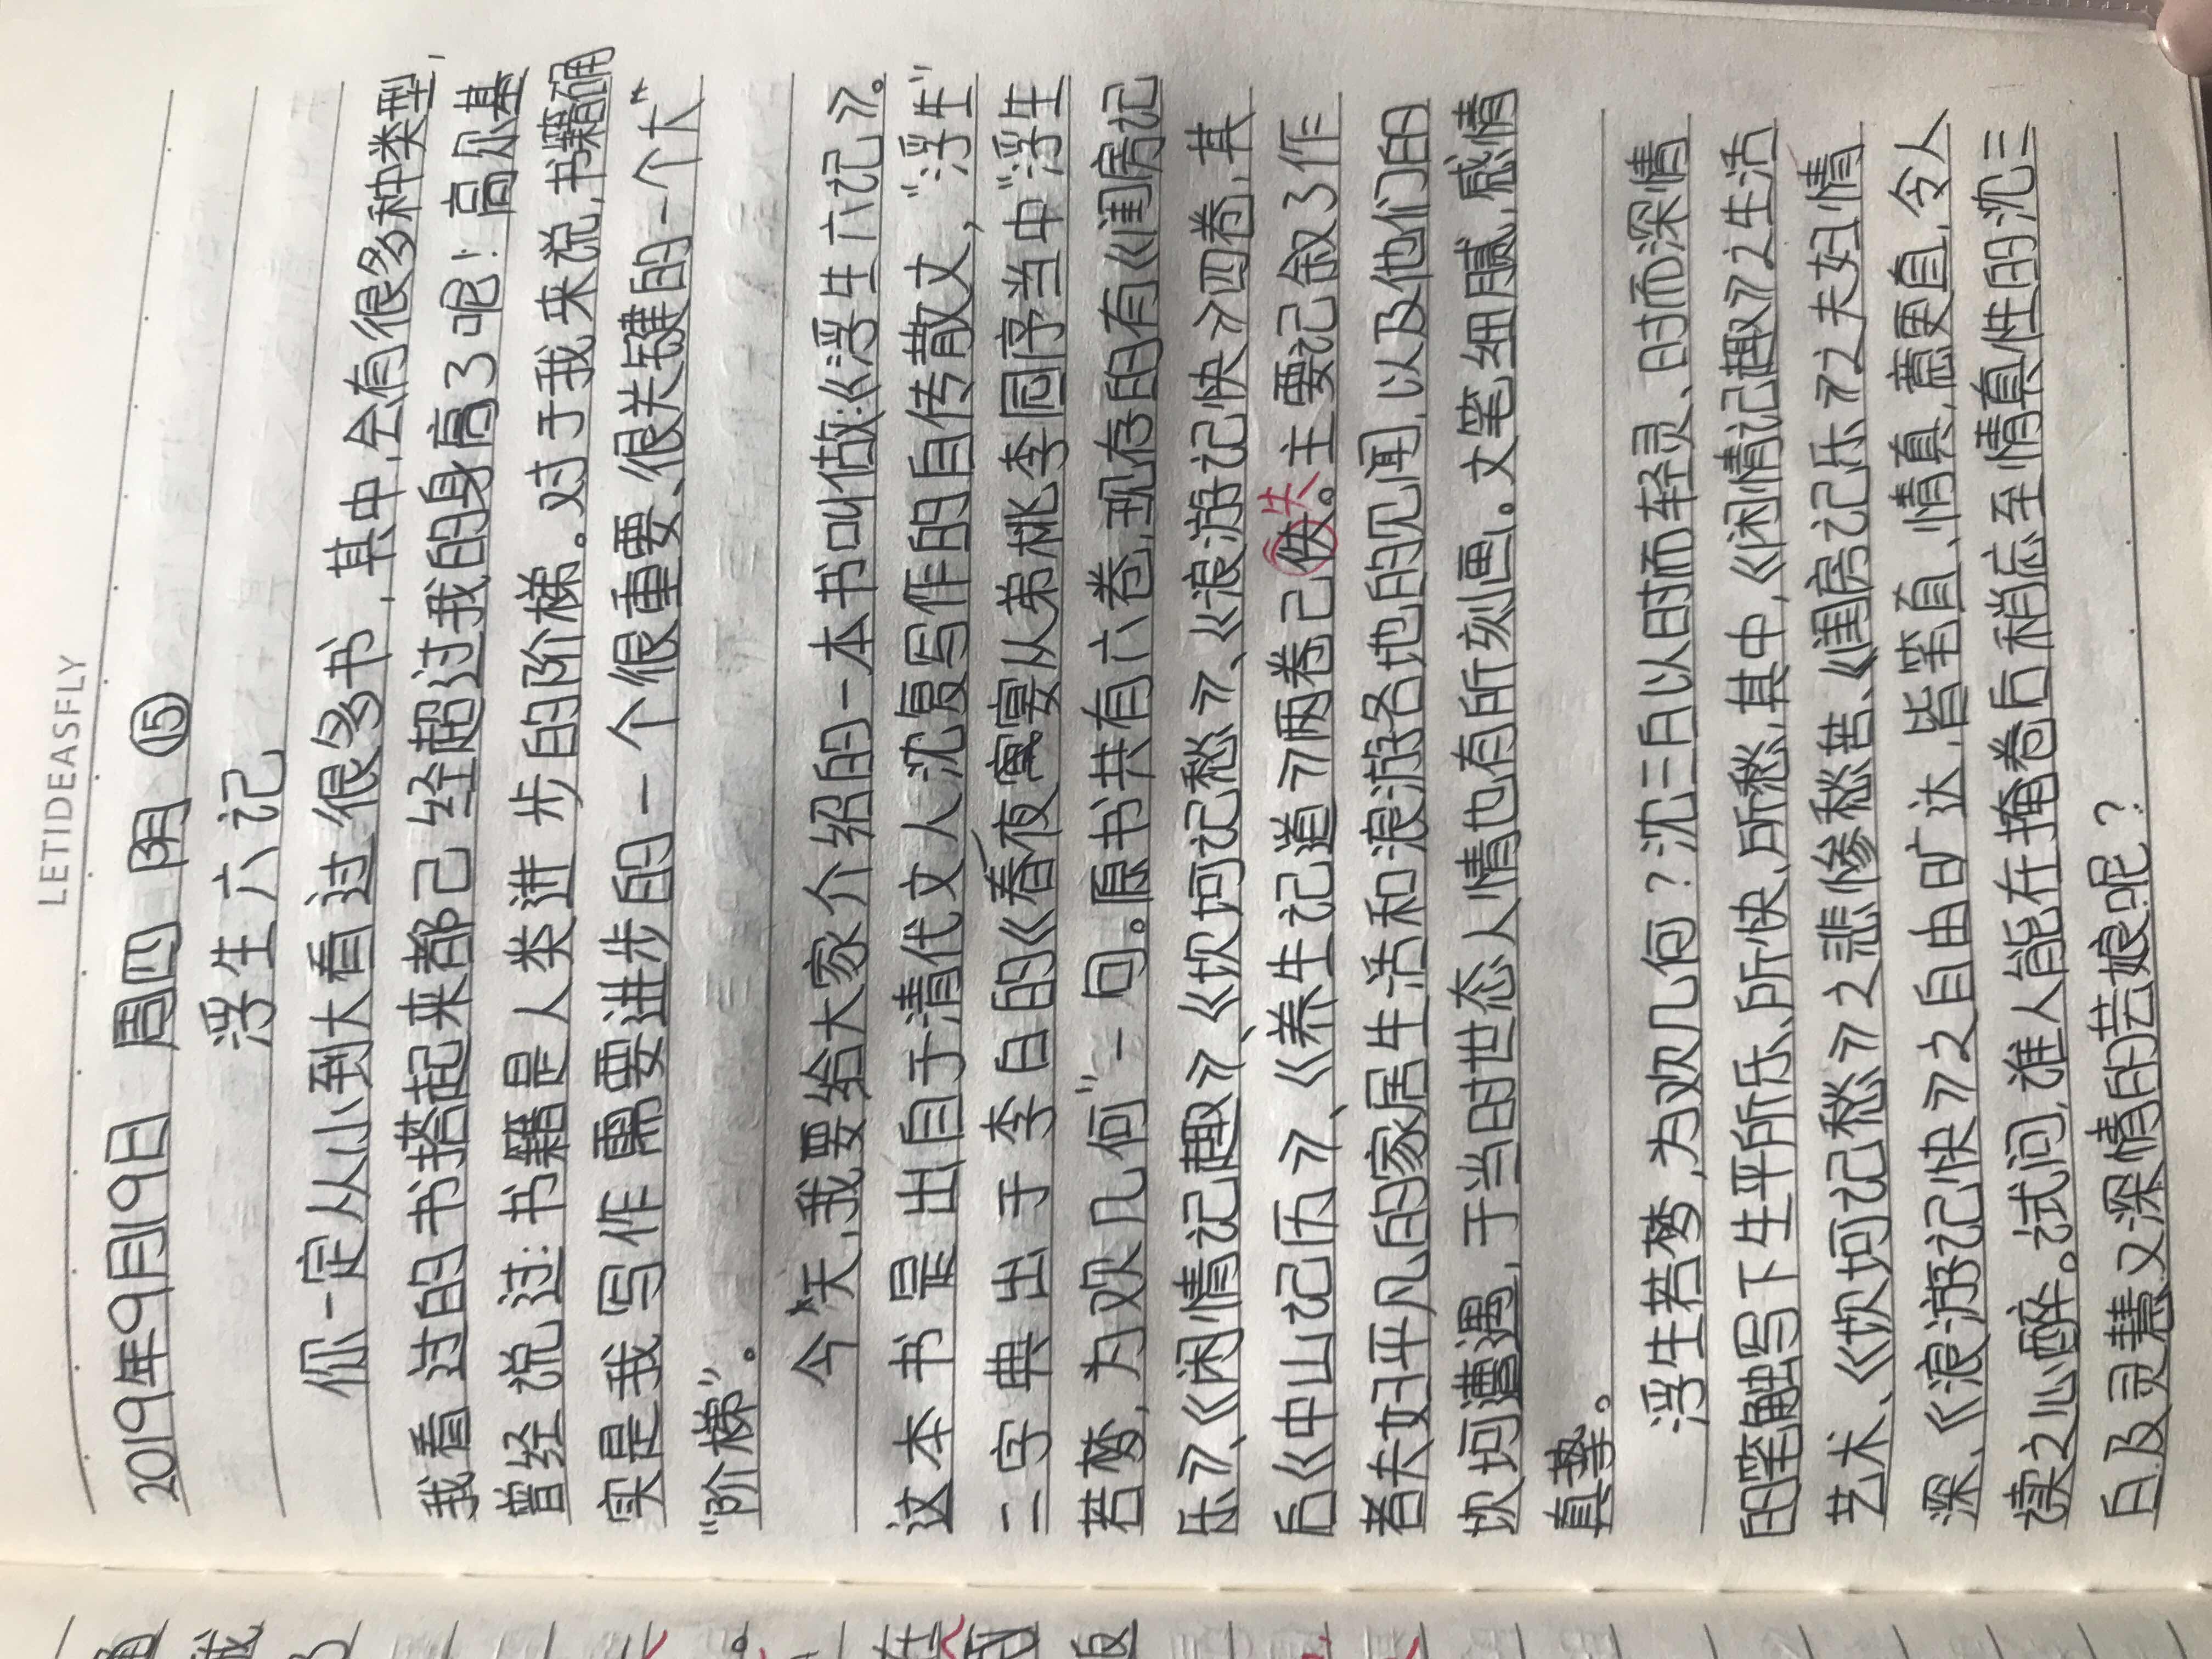 LETIDEASFLY
2019年9月19日 周四 阴 ⑮
浮生六记
你一定从小到大看过很多书,其中,会有很多种类型,
我看过的书搭起来都己经超过我的身高了呢!高尔基
曾经说过:书籍是人类进步的阶梯。对于我来说,书籍确
实是我写作需要进步的一个很重要、很关键的一个大
“阶梯”。
今天,我要给大家介绍的一本书叫做:《浮生六记》。
这本书是出自于清代文人沈复写作的自传散文,“浮生”
二字典出于李白的《春夜宴从弟桃李园序当中“浮生
若梦,为欢几何”一句。原书共有六卷,现存的有《闺房记
乐》、《闲情记趣》、《坎坷记愁》、《浪游记快》四卷,其
后《中山记历》、《养生记道》两卷己佚。主要记叙了作
失
者夫妇平凡的家居生活和浪游各地的见闻,以及他们的
坎坷遭遇,于当时世态人情也有所刻画。文笔细腻,感情
真挚。
浮生若梦,为欢几何?沈三白以时而轻灵、时而深情
的笔触写下生平所乐、所快、所愁,其中,《闲情记趣》之生活
艺术、《坎坷记愁》之悲惨愁苦、《闺房记乐》之夫妇情
深、《浪游记快》之自由旷达,皆笔直、情真,意更直,令人
读之心醉。试问,谁人能在掩卷后稍忘至情真性的沈三
白及灵慧又深情的芸娘呢?